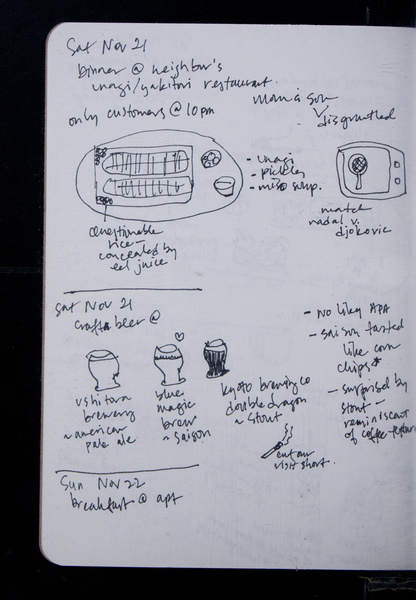 Sat Nov 21
dinner @ neighbor's
unagi/yakitori restaurant.
only customers @ 10pm
mom & son
disgruntled
- unagi
- pickles
- miso soup.
match
nadal v.
djokovic
questionable
rice —
concealed by
eel juice
Sat Nov 21
craft beer @
ushitora
brewery
~ american
pale ale
blue
magic
brew
~ saison
kyoto brewing co
double dragon
~ stout
cut our
visit short.
- no likey APA
- saison tasted
like corn
chips*
- surprised by
stout -
reminiscent
of coffee
Sun Nov 22
breakfast @ apt